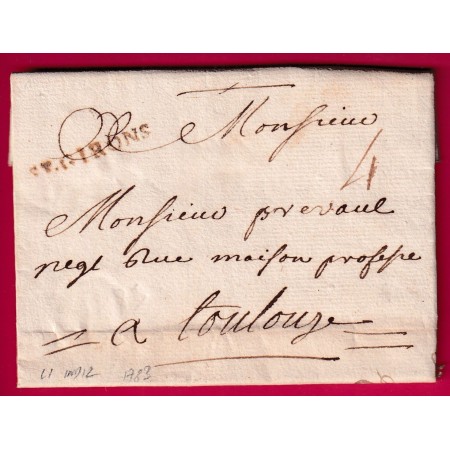 A Monsieur
ST.GIRONS
4
Monsieur prevaul
negt Rue maison professe
a toulouze
1783